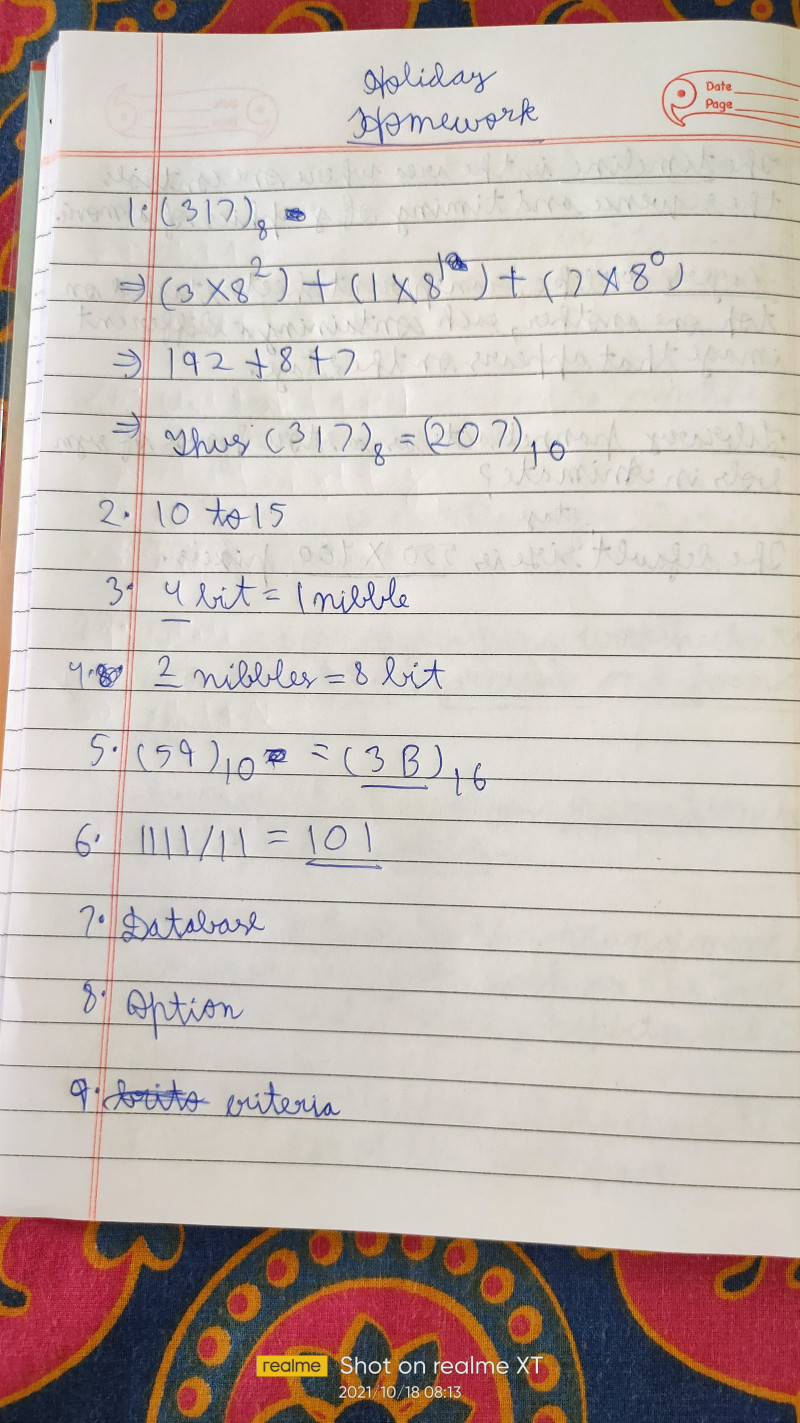 Holiday
Homework
Date
Page
1. (317)₈
⇒ (3 × 8²) + (1 × 8¹) + (7 × 8⁰)
⇒ 192 + 8 + 7
⇒ Thus (317)₈ = (207)₁₀
2. 10 to 15
3. 4 bit = 1 nibble
4. 2 nibbles = 8 bit
5. (59)₁₀ = (3B)₁₆
6. 1111/11 = 101
7. Database
8. Option
9. criteria
realme Shot on realme XT
2021/10/18 08:13